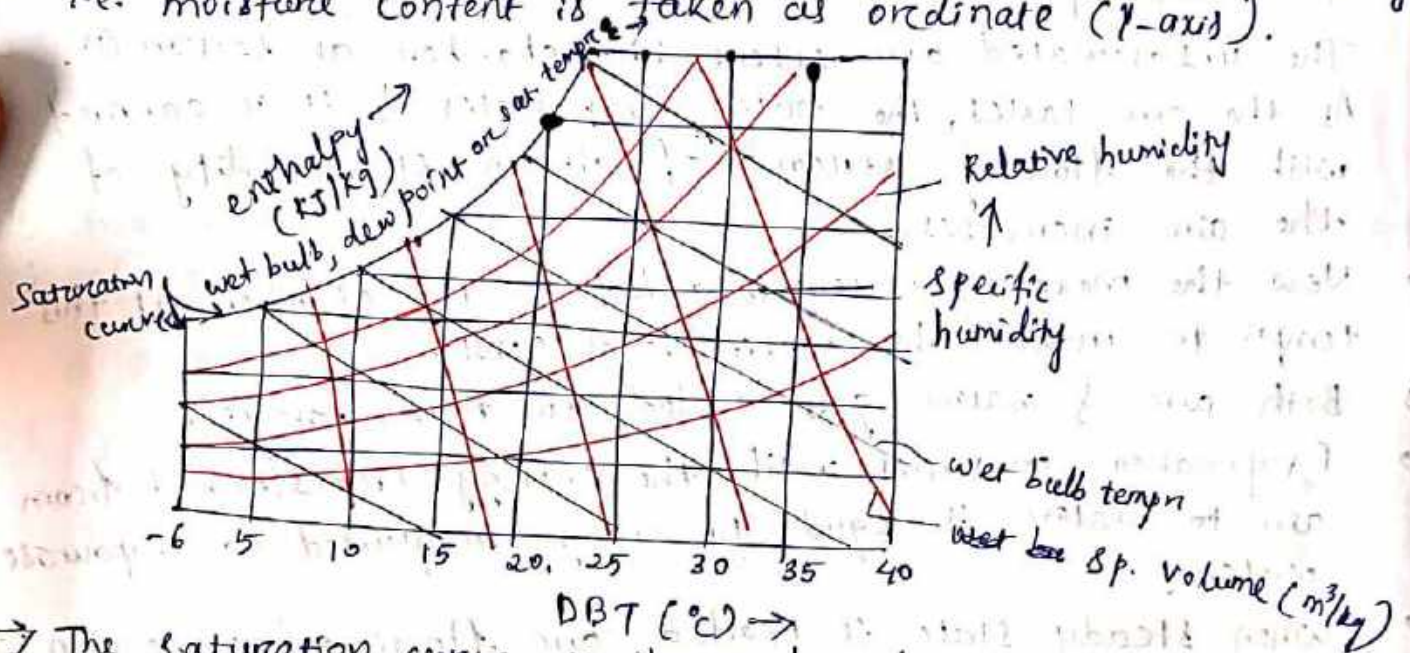 moisture content is taken as ordinate (y-axis).
enthalpy →
(KJ/kg)
wet bulb, dew point or sat. tempr →
Saturation
curve
Relative humidity
↑
specific
humidity
wet bulb tempn
sp. volume (m³/kg)
-6 5 10 15 20. 25 30 35 40
DBT (°C) →
→ The saturation